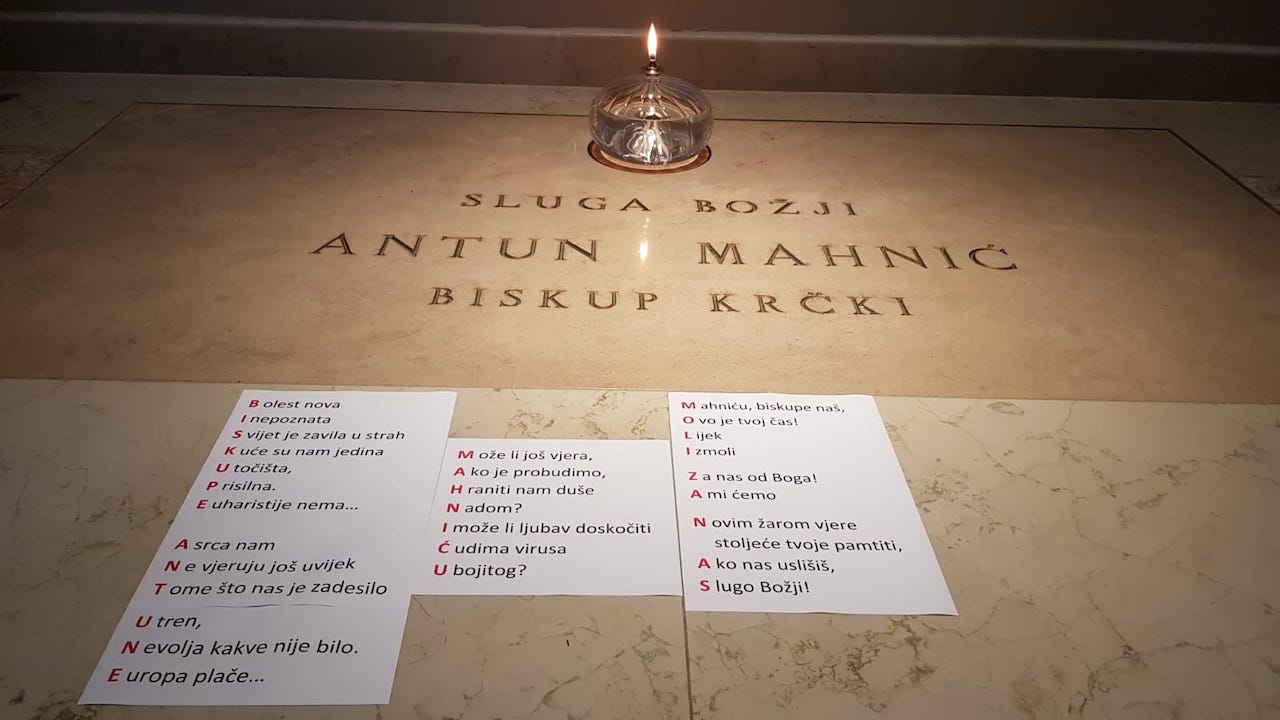 SLUGA BOŽJI
ANTUN MAHNIĆ
BISKUP KRČKI
Bolest nova
I nepoznata
Svijet je zavila u strah
Kuće su nam jedina
Utočišta,
Prisilna.
Euharistije nema...
A srca nam
Ne vjeruju još uvijek
Tome što nas je zadesilo
U tren,
Nevolja kakve nije bilo.
Europa plače...
Može li još vjera,
Ako je probudimo,
Hraniti nam duše
Nadom?
I može li ljubav doskočiti
Ćudima virusa
Ubojitog?
Mahniću, biskupe naš,
Ovo je tvoj čas!
Lijek
Izmoli
Za nas od Boga!
A mi ćemo
Novim žarom vjere
stoljeće tvoje pamtiti,
Ako nas uslišiš,
Slugo Božji!